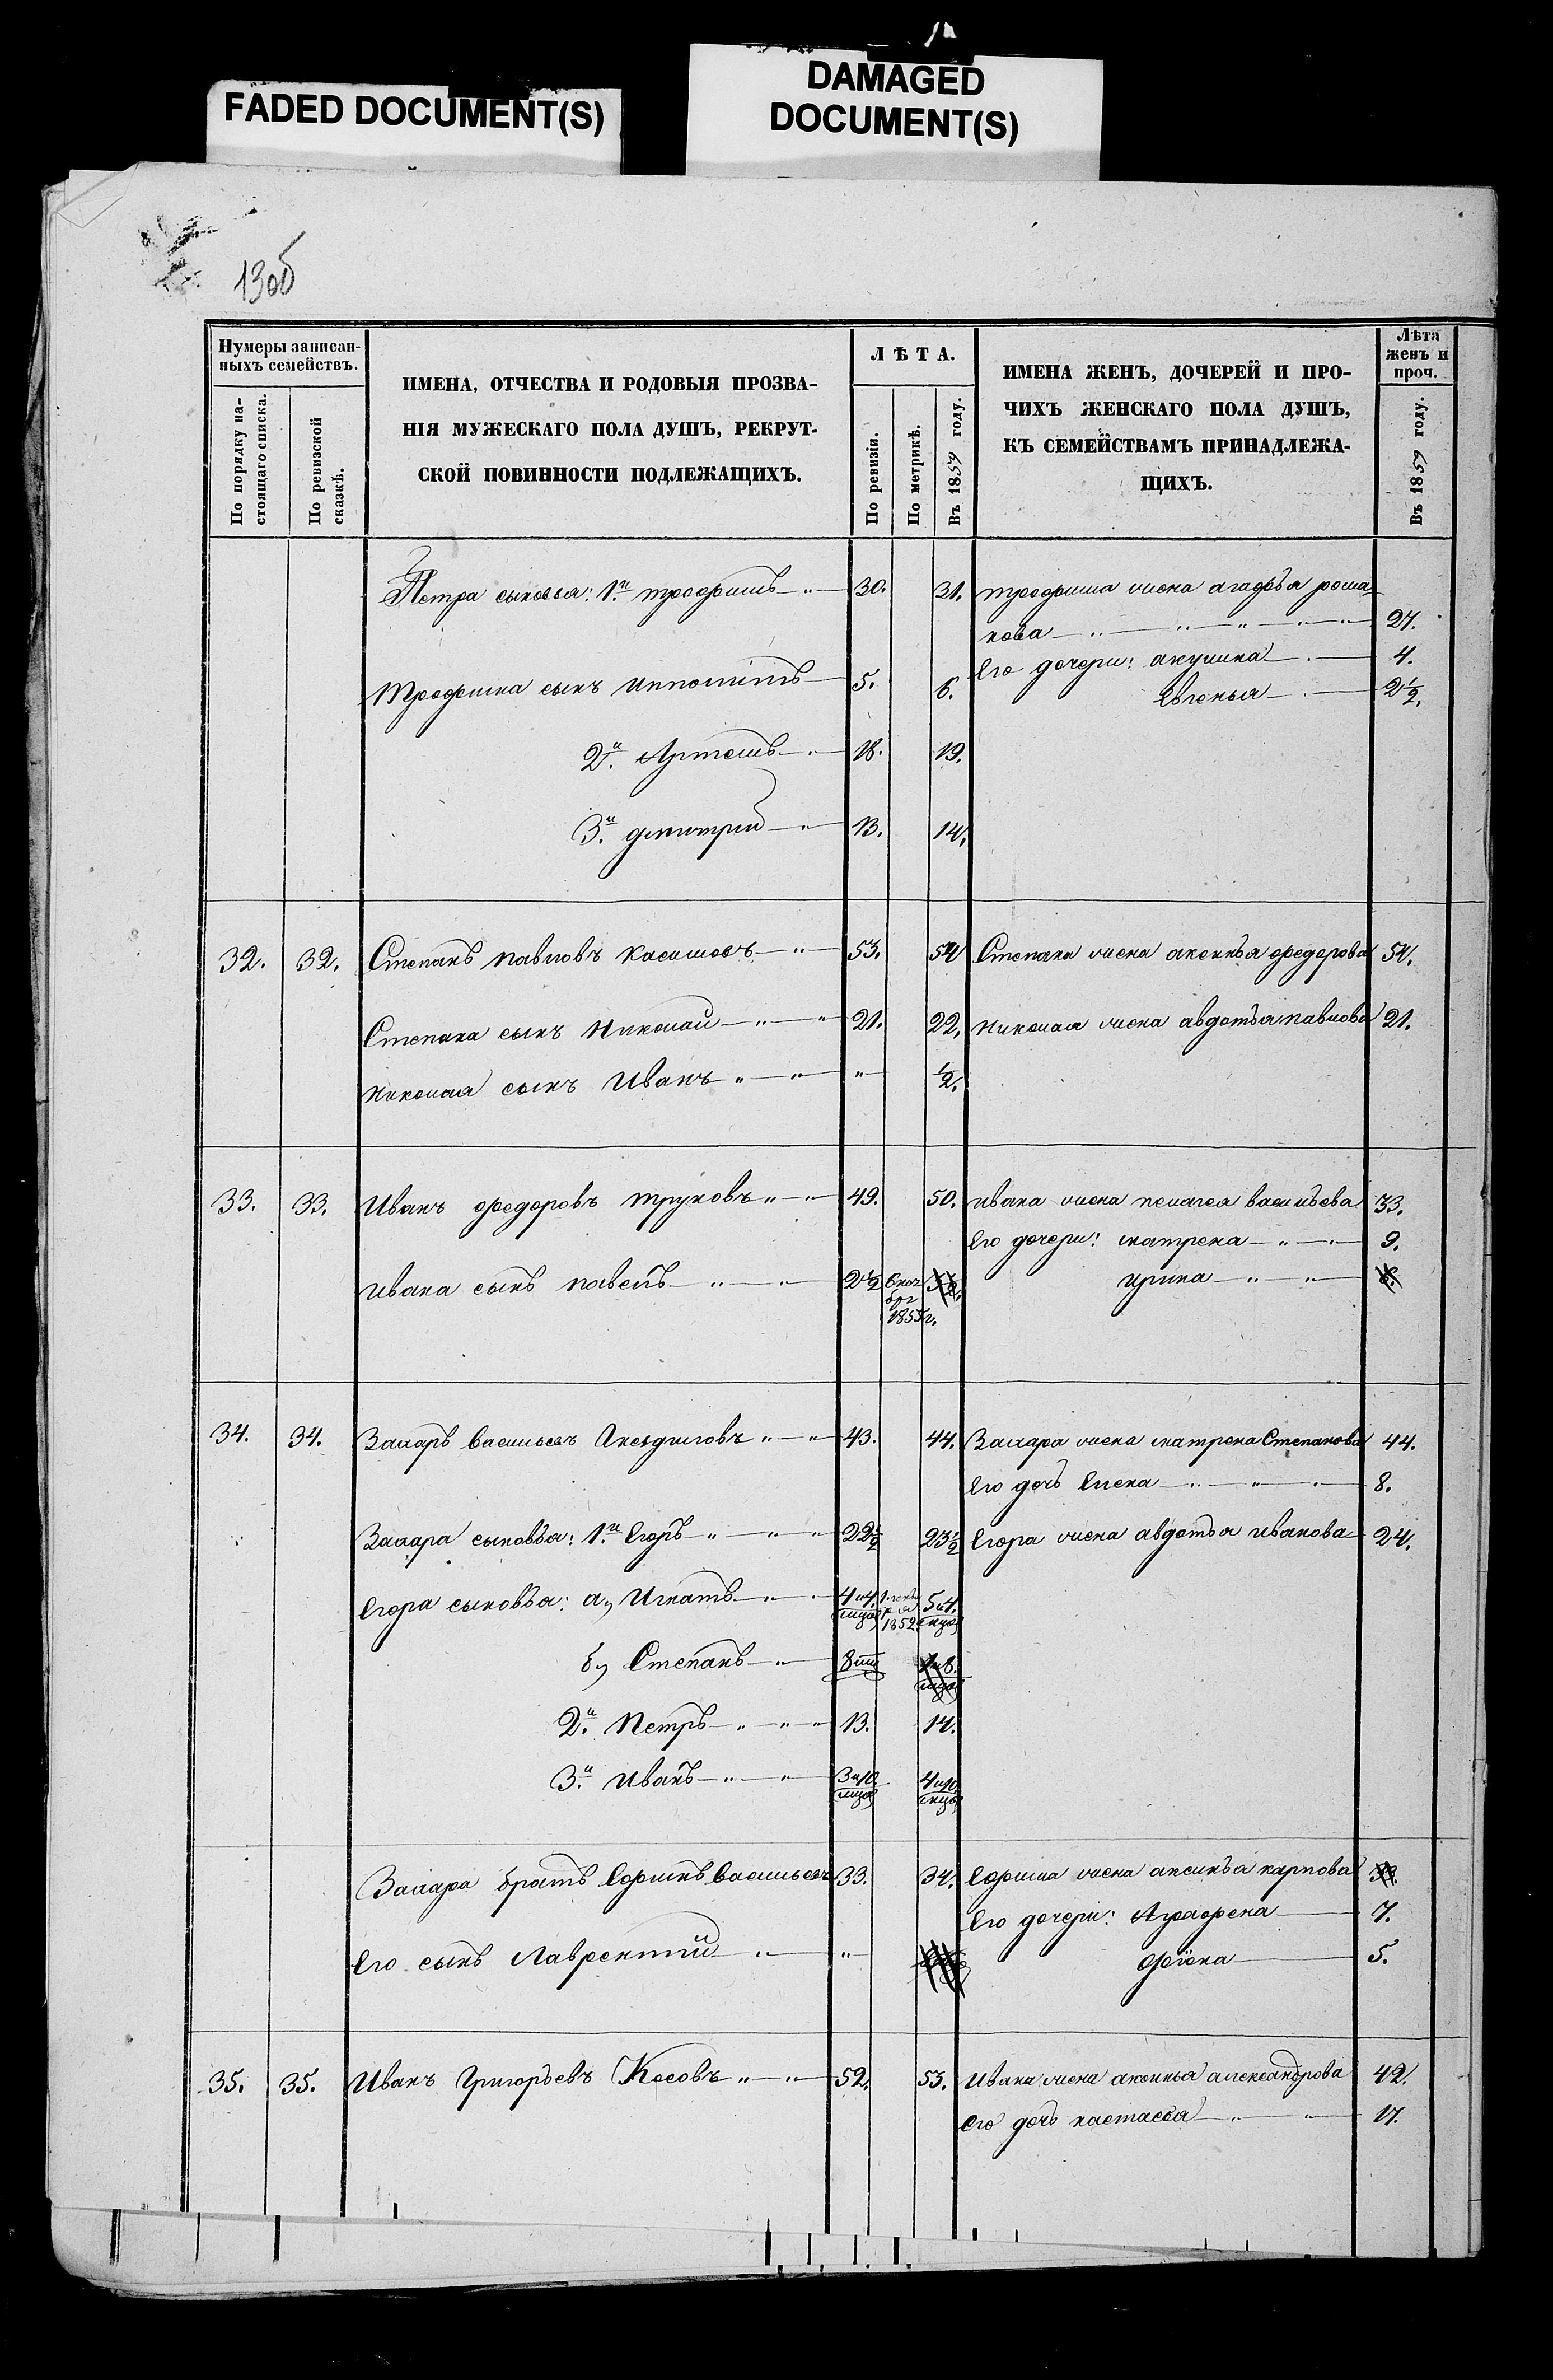 FADED DOCUMENT(S)
DAMAGED
DOCUMENT(S)
13об
Нумеры записан-
ныхъ семействъ.
По порядку на-
стоящаго списка.
По ревизской
сказкѣ.
ИМЕНА, ОТЧЕСТВА И РОДОВЫЯ ПРОЗВА-
НІЯ МУЖЕСКАГО ПОЛА ДУШЪ, РЕКРУТ-
СКОЙ ПОВИННОСТИ ПОДЛЕЖАЩИХЪ.
ЛѢТА.
По ревизіи.
По метрикѣ.
Въ 1859 году.
ИМЕНА ЖЕНЪ, ДОЧЕРЕЙ И ПРО-
ЧИХЪ ЖЕНСКАГО ПОЛА ДУШЪ,
КЪ СЕМЕЙСТВАМЪ ПРИНАДЛЕЖА-
ЩИХЪ.
Лѣта
женъ и
проч.
Въ 1859 году.
Петра сыновья: 1й трофимъ 30. 31. трофима жена агафья рома-
нова 27.
Его дочери: акулина 4.
Трофима сынъ ипполитъ 5. 6. Евгенья 2½.
2й Артемъ 18. 19.
3й дмитрий 13. 14.
32. 32. Степанъ павловъ Касимовъ 53. 54 Степана жена аксинья федорова 54.
Степана сынъ Николай 21. 22. николая жена авдотья павлова 21.
николая сынъ Иванъ " ½.
33. 33. Иванъ федоровъ труновъ 49. 50. ивана жена пелагея васильева 33.
Его дочери: матрена 9.
Ивана сынъ павелъ 2½ 1855г. ирина
34. 34. Захаръ васильевъ 43. 44. Захара жена матрена Степанова 44.
Его дочь Елена 8.
Захара сыновья: 1й Егоръ 22½ 23½ Егора жена авдотья иванова 24.
Егора сыновья: а, Игнатъ 4 и 4 1852 5 и 4.
б, Степанъ 8
2й Петръ 13. 14.
3й Иванъ 3 и 10 4 и 10
Захара братъ Ефимъ васильевъ 33. 34. Ефима жена аксинья карпова
Его дочери: Аграфена 7.
Его сынъ Лаврентий " фіона 5.
35. 35. Иванъ Григорьевъ Косовъ 52. 53. Ивана жена аксинья александрова 42.
Его дочь настасья 17.